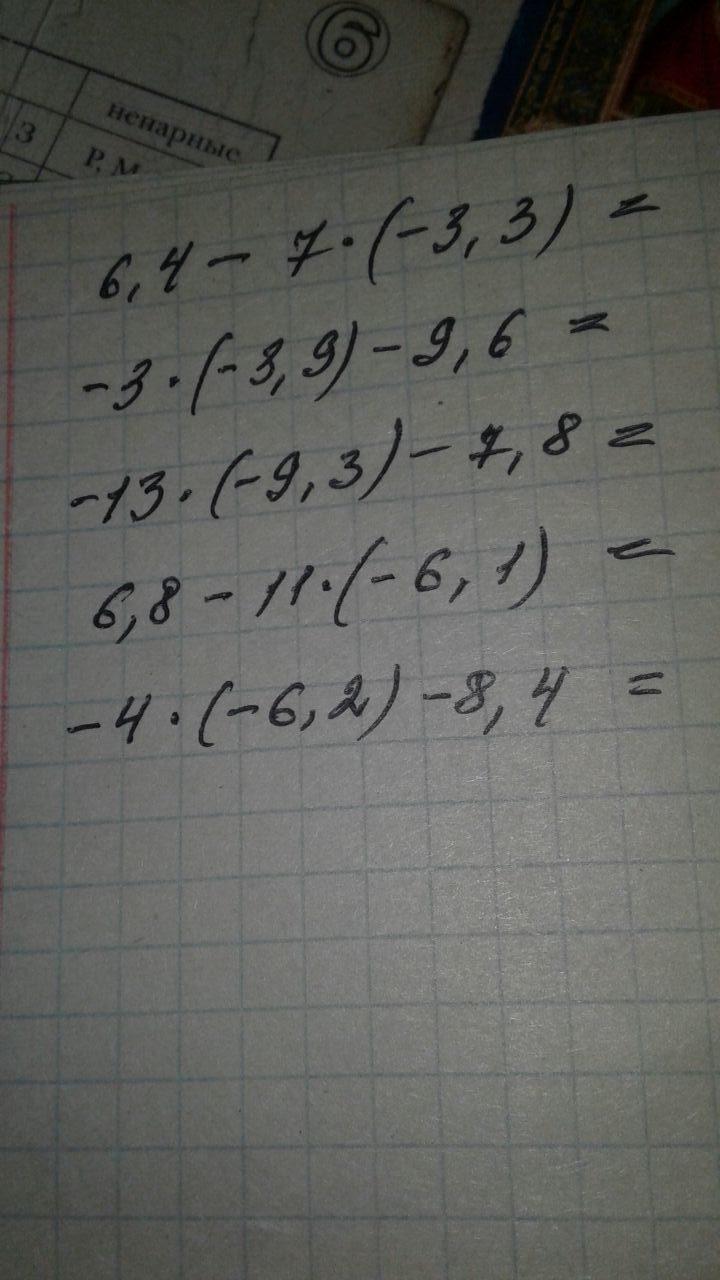 6
ненарные
З
Р, М
6,4 - 7·(-3,3) =
-3·(-3,9) - 9,6 =
-13·(-9,3) - 7,8 =
6,8 - 11·(-6,1) =
-4·(-6,2) - 8,4 =